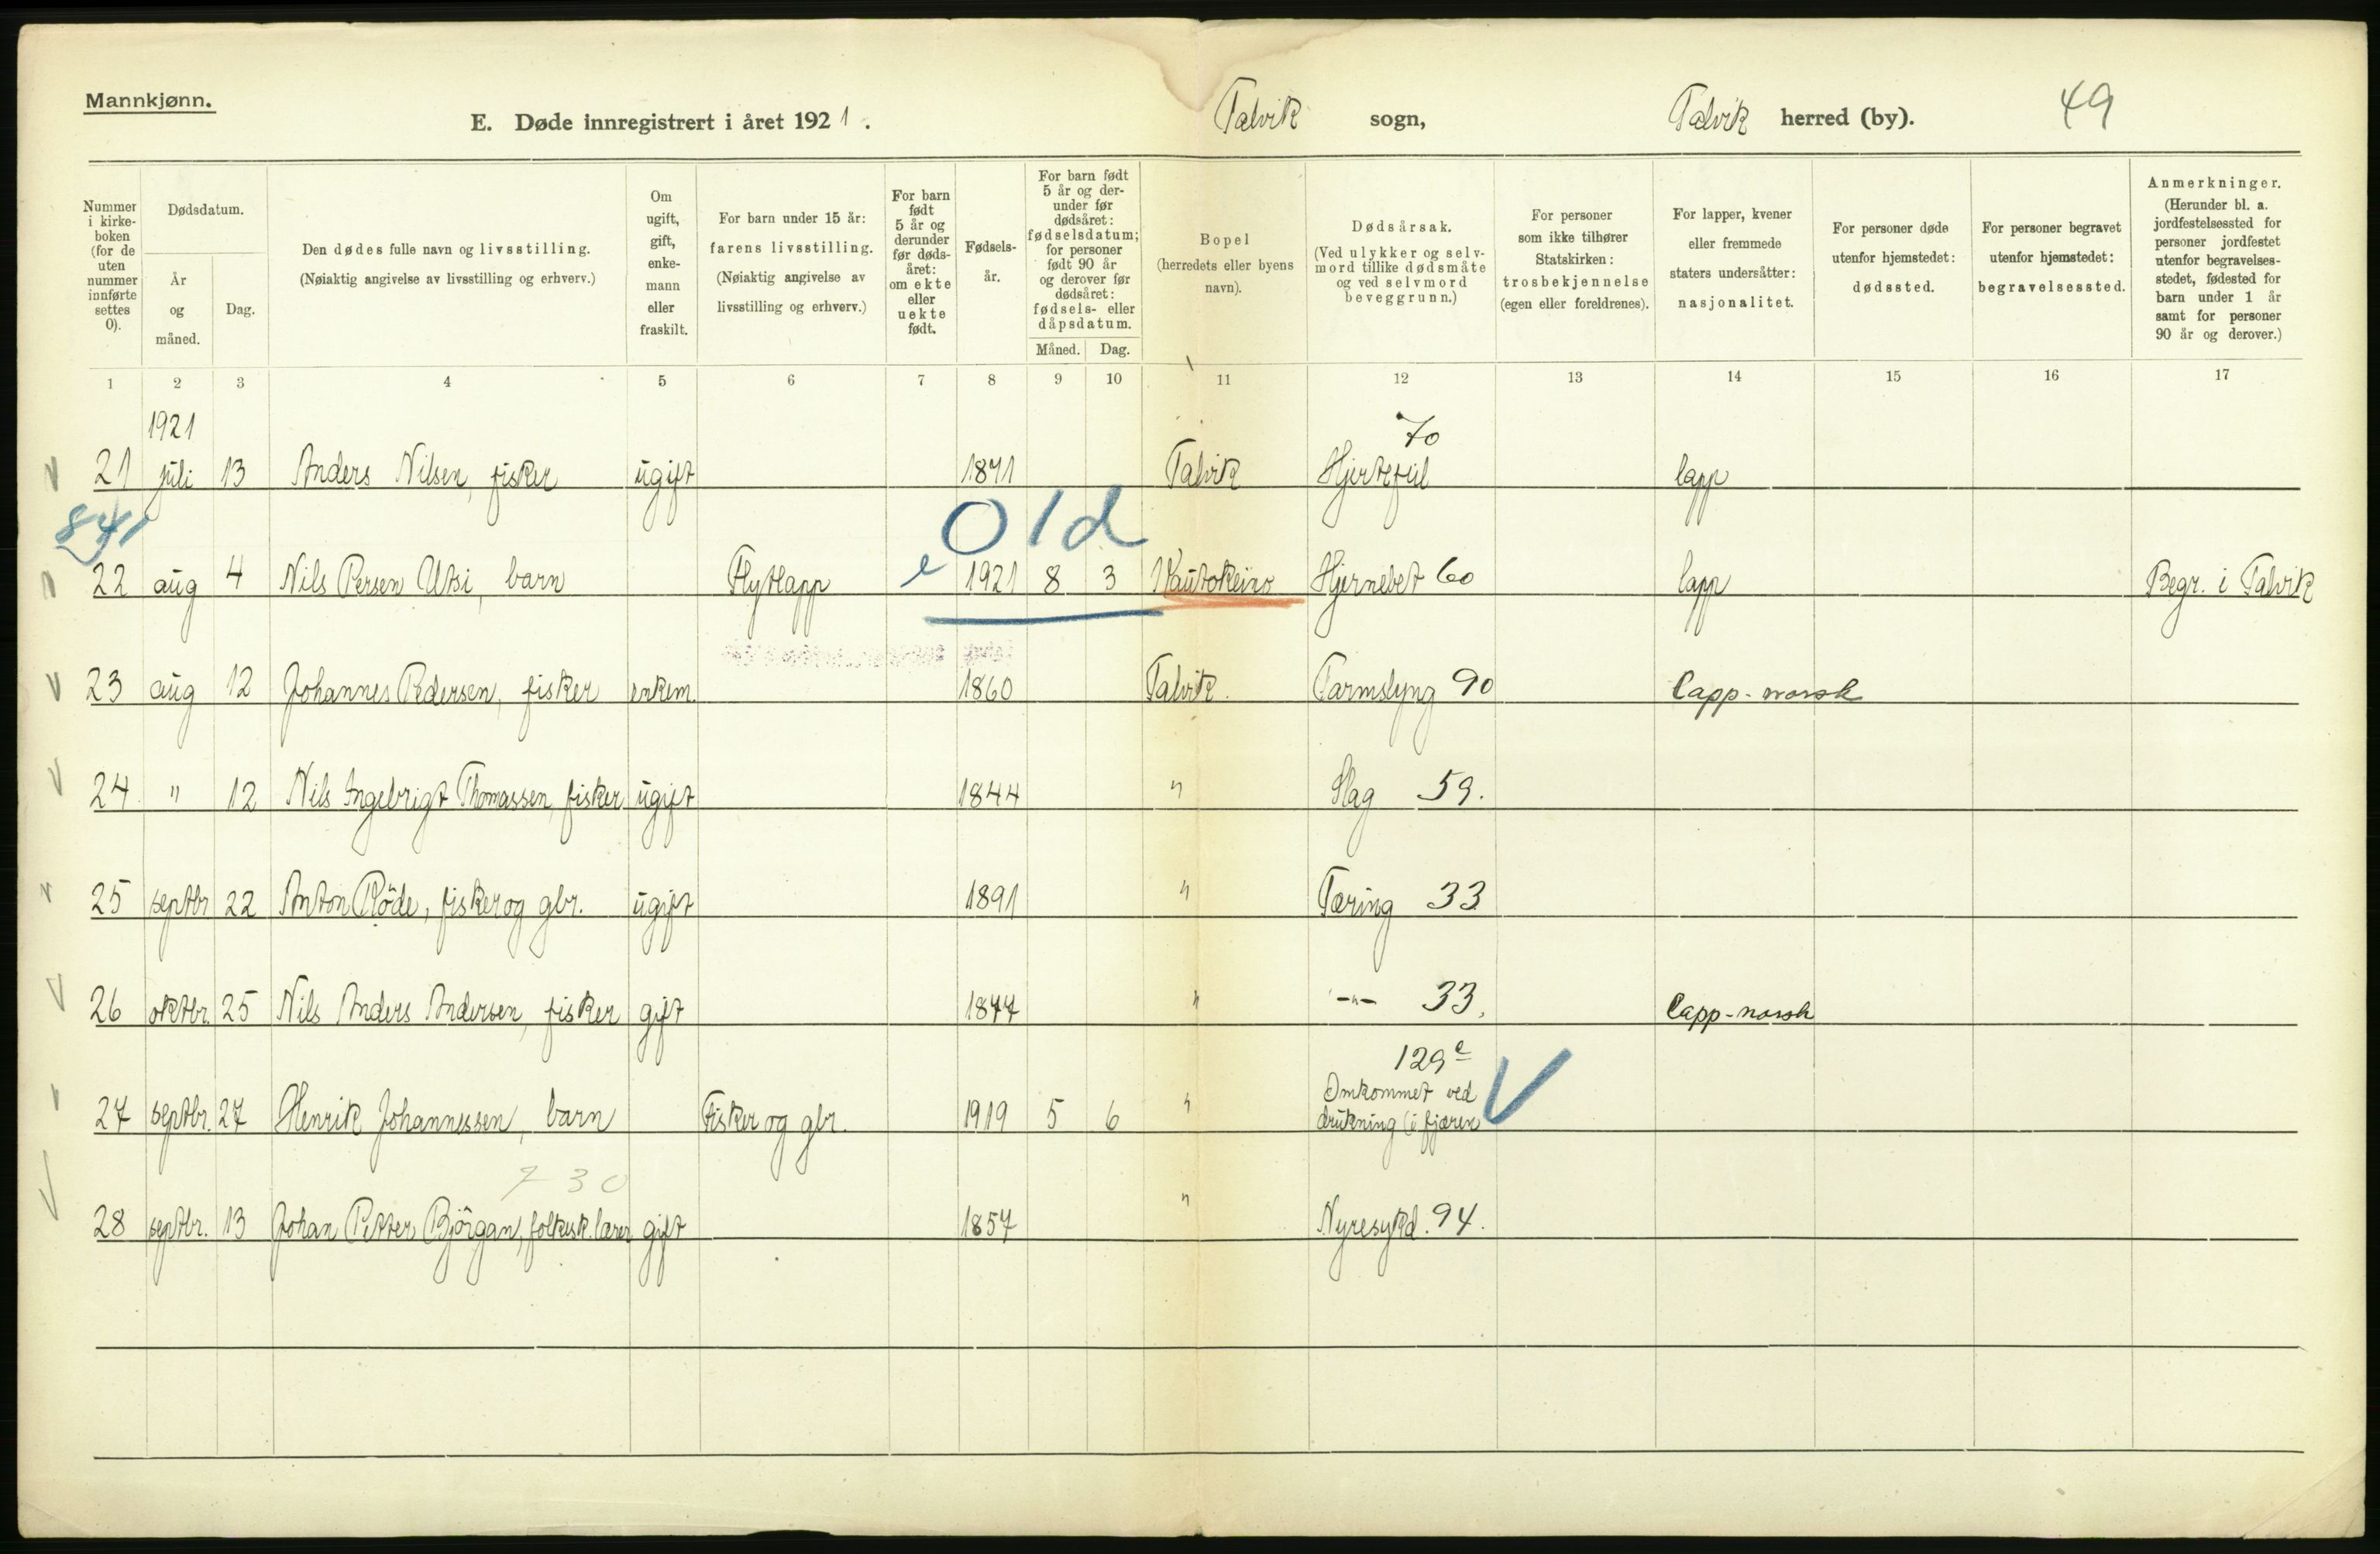 Mannkjønn.
E. Døde innregistrert i året 1921.
Talvik sogn,
Talvik herred (by).
49
Nummer i kirke-boken (for de uten nummer innførte settes 0).
Dødsdatum.
År og måned.
Dag.
Den dødes fulle navn og livsstilling.
(Nøiaktig angivelse av livsstilling og erhverv.)
Om ugift, gift, enke-mann eller fraskilt.
For barn under 15 år:
farens livsstilling.
(Nøiaktig angivelse av livsstilling og erhverv.)
For barn født 5 år og derunder før døds-året: om ekte eller uekte født.
Fødsels-år.
For barn født 5 år og der-under før dødsåret: fødselsdatum; for personer født 90 år og derover før dødsåret: fødsels- eller dåpsdatum.
Måned.
Dag.
Bopel
(herredets eller byens navn).
Dødsårsak.
(Ved ulykker og selv-mord tillike dødsmåte og ved selvmord beveggrunn.)
For personer som ikke tilhører Statskirken:
trosbekjennelse
(egen eller foreldrenes).
For lapper, kvener eller fremmede staters undersåtter:
nasjonalitet.
For personer døde utenfor hjemstedet:
dødssted.
For personer begravet utenfor hjemstedet:
begravelsessted.
Anmerkninger.
(Herunder bl. a. jordfestelsessted for personer jordfestet utenfor begravelses-stedet, fødested for barn under 1 år samt for personer 90 år og derover.)
1 2 3 4 5 6 7 8 9 10 11 12 13 14 15 16 17
1921
70
21 juli 13 Anders Nilsen, fisker ugift 1871 Talvik Hjertefeil lapp
841
01d
22 aug 4 Nils Persen Utsi, barn Flytlapp e 1921 8 3 Kautokeino Hjernebet 60 lapp Begr. i Talvik
23 aug 12 Johannes Pedersen, fisker enkem. 1860 Talvik. Tarmslyng 90 Lapp-norsk
24 " 12 Nils Ingebrigt Thomassen, fisker ugift 1844 " Slag 59.
25 septbr 22 Anton Röde, fisker og gbr. ugift 1891 " Tæring 33
26 oktbr. 25 Nils Anders Andersen, fisker gift 1877 " -"- 33. Lapp-norsk
129 e
Omkommet ved
27 septbr. 27 Henrik Johannessen, barn Fisker og gbr. 1919 5 6 " drukning (i fjæren
730
28 septbr. 13 Johan Petter Björgan, folkesk.lærer gift 1857 " Nyresykd. 94.